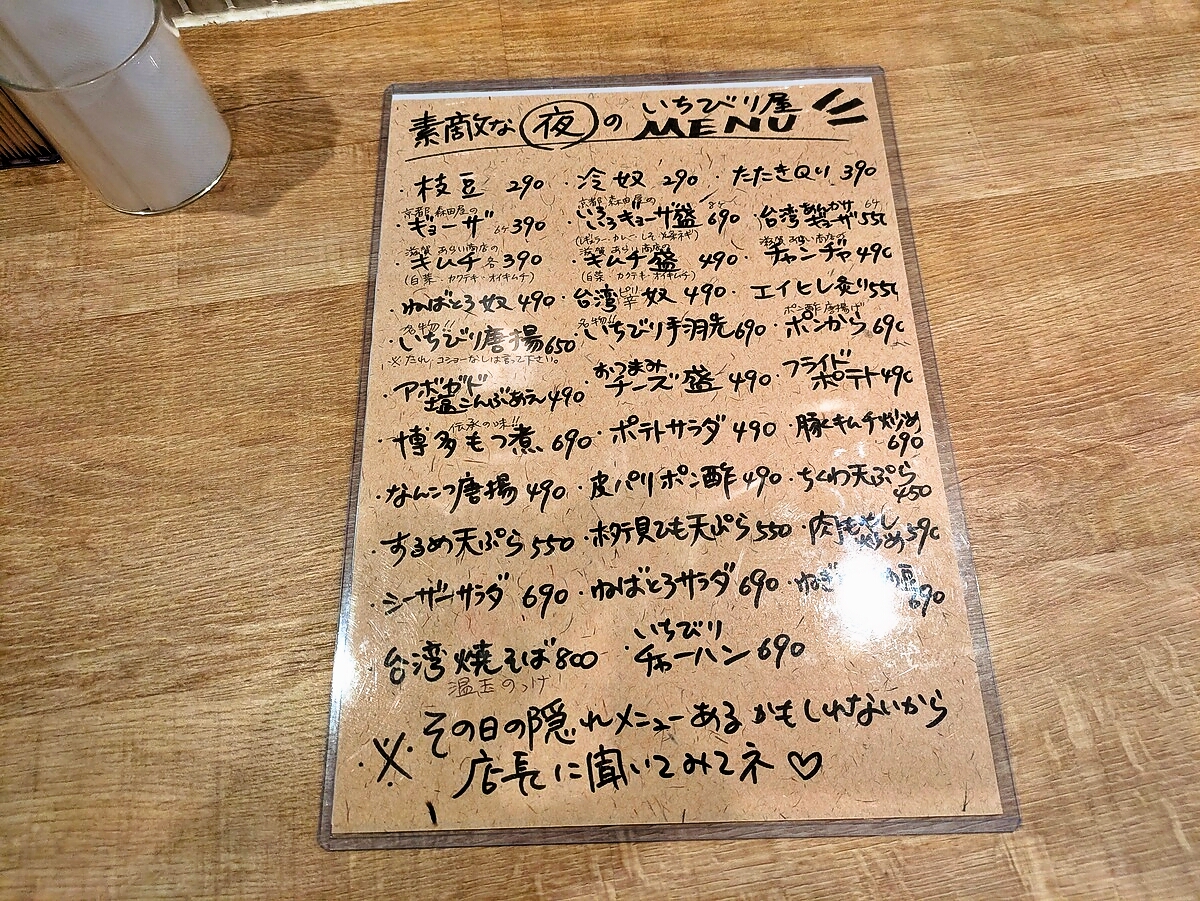 素敵な 夜 の いちびり屋 MENU
・枝豆 290 ・冷奴 290 ・たたきQり 390
京都 森田屋の 京都 森田屋の
・ギョーザ 6ケ 390 ・いろいろギョーザ盛 690 ・台湾 ギョーザ 550
滋賀 あらい商店の 滋賀 あらい商店の 滋賀 あらい商店の
・キムチ 各390 ・キムチ盛 490 ・チャンヂャ 490
(白菜 カクテキ・オイキムチ) (白菜 カクテキ・オイキムチ)
・ねばとろ奴 490 ・台湾ピリ辛奴 490 ・エイヒレ炙り 550
名物!! 名物!! ポン酢唐揚げ
・いちびり唐揚 650 ・いちびり手羽先 690 ・ポンから 690
※たれ、コショーなしは言って下さい。
・アボガド塩こんぶあえ 490 ・おつまみチーズ盛 490 ・フライドポテト 490
伝承の味!!
・博多もつ煮 690 ・ポテトサラダ 490 ・豚キムチ炒め 690
・なんこつ唐揚 490 ・皮パリポン酢 490 ・ちくわ天ぷら 450
・するめ天ぷら 550 ・ホタテ貝ひも天ぷら 550 ・肉もやし炒め 590
・シーザーサラダ 690 ・ねばとろサラダ 690 ・ねぎ 690
・台湾焼そば 800 ・いちびりチャーハン 690
温玉のっけ!
※その日の隠れメニューあるかもしれないから
店長に聞いてみてネ♡